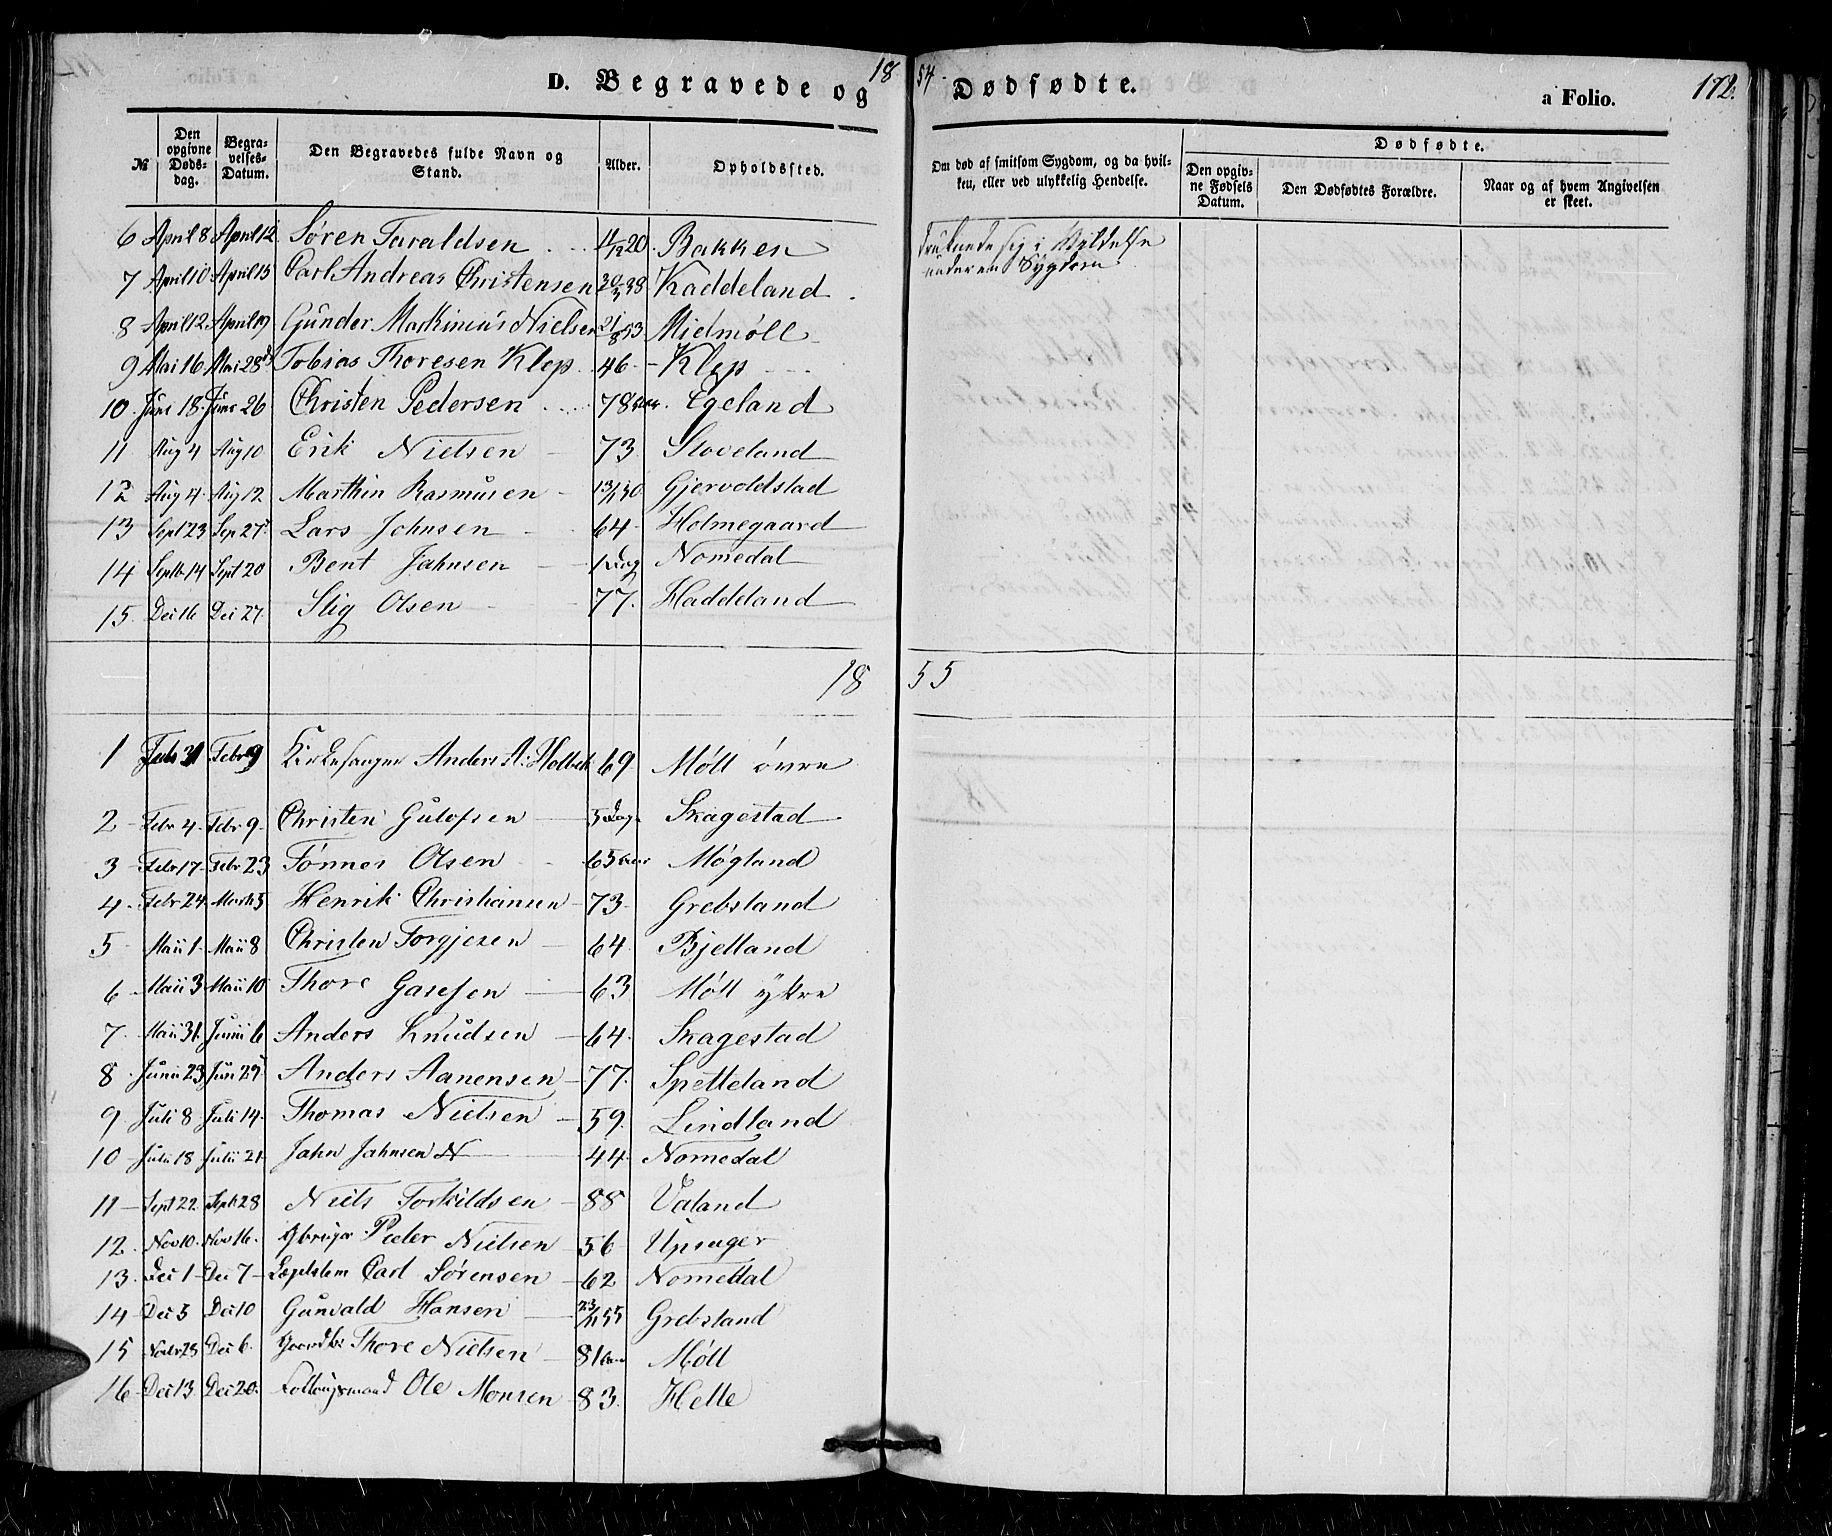 D. Begravede og 18 54. Dødfødte. a Folio. 172.
№ Den opgivne Dødsdag. Begravelses-Datum. Den Begravedes fulde Navn og Stand. Alder. Opholdssted. Om død af smitsom Sygdom, og da hvilken, eller ved ulykkelig Hendelse. Dødfødte. Den opgivne Fødsels Datum. Den Dødfødtes Forældre. Naar og af hvem Angivelsen er skeet.
6 April 8 April 12 Søren Taraldsen 11/12 20 Bakken druknede sig i Vildelse
under en Sygdom
7 April 10 April 15 Carl Andreas Christensen 30/3 38 Kaddeland
8 April 12 April 19 Gunder Nielsen 21/8 53 Midmøll
9 Mai 16 Mai 28 Tobias Thoresen Klep 46 Klep
10 Juni 18 Juni 26 Christen Pedersen 78 Egeland
11 Aug 4 Aug 10 Erik Nielsen 73 Stoveland
12 Aug 4 Aug 12 Marthin Rasmusen Gjervoldstad
13 Sept 23 Sep 27 Lars Johnsen 64 Holmegaard
14 Septb 14 Sept 20 Bent Jahnsen 1 Dag Nomedal
15 Dec 16 Dec 27 Stig Olsen 77 Haddeland
18 55
1 Febr 9 Kirkesanger Anders A: Holbek 69 Møll övre
2 Febr 4 Febr 9 Christen Gulofsen 5 Dage Skagestad
3 Febr 17 Febr 23 Tönnes Olsen 65 Aar Møgland
4 Febr 24 Marts 5 Henrik Christiansen 73 Grebstand
5 Maii 1 Maii 8 Christen Torgjesen 64 Bjelland
6 Maii 3 Maii 10 Thore 63 Møll ÿtre
7 Maii 31 Junii 6 Anders Knudsen 64 Skagestad
8 Junii 23 Juni 29 Anders Aanensen 77 Spetteland
9 Juli 8 Juli 14 Thomas Nielsen 59 Lindland
10 Julii 18 Julii 21 Jahn Jahnsen N 44 Nomedal
11 Sept 22 Sept 28 Niels Torkildsen 88 Valand
12 Nov 10 Nov 16 Peder Nielsen 56 Upsager
13 Dec 1 Dec 7 Lægdslem Carl Sörensen 62 Nomedal
14 Dec 5 Dec 10 Gunvald Hansen 23/11 55 Grebstand
15 Novbr 28 Dec 6 Thore Nielsen 81 Aar Møll
16 Dec 13 Dec 20 Ole Monsen 83 Helle